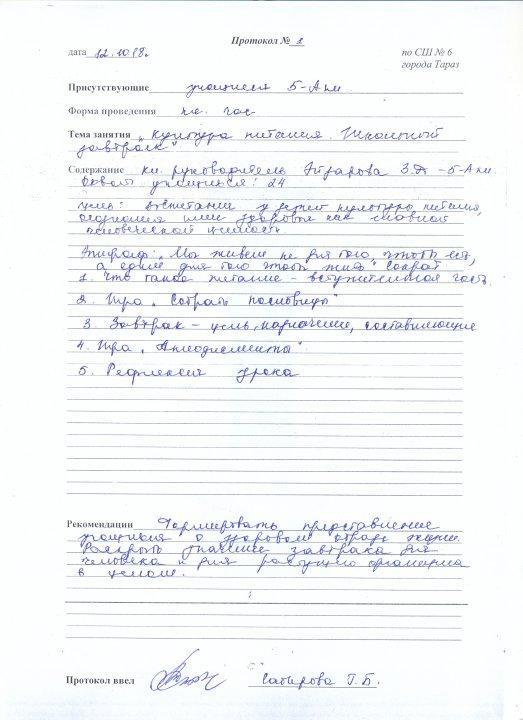 Протокол № 2
дата 12.10.18г.
по СШ № 6
города Тараз
Присутствующие учащиеся 5-А кл.
Форма проведения кл. час
Тема занятия „Культура питания. Школьный
завтрак"
Содержание кл. руководитель З.Д -5-А кл.
Охват учащихся: 24
Цель: воспитание у детей культуры питания,
осознания ими здоровья как главной
человеческой ценности.
Эпиграф: „Мы живем не для того, чтоб есть,
а едим для того чтобы жить" Сократ
1. Что такое питание – вступительная часть.
2. Игра „Собрать пословицы"
3. Завтрак – цель, назначение, составляющие
4. Игра „Аплодисменты".
5. Рефлексия урока
Рекомендации Формировать представление
учащихся о здоровом образе жизни.
Раскрыть значение завтрака для
человека и для растущего организма
в целом.
Протокол ввел Сатирова Г.Б.